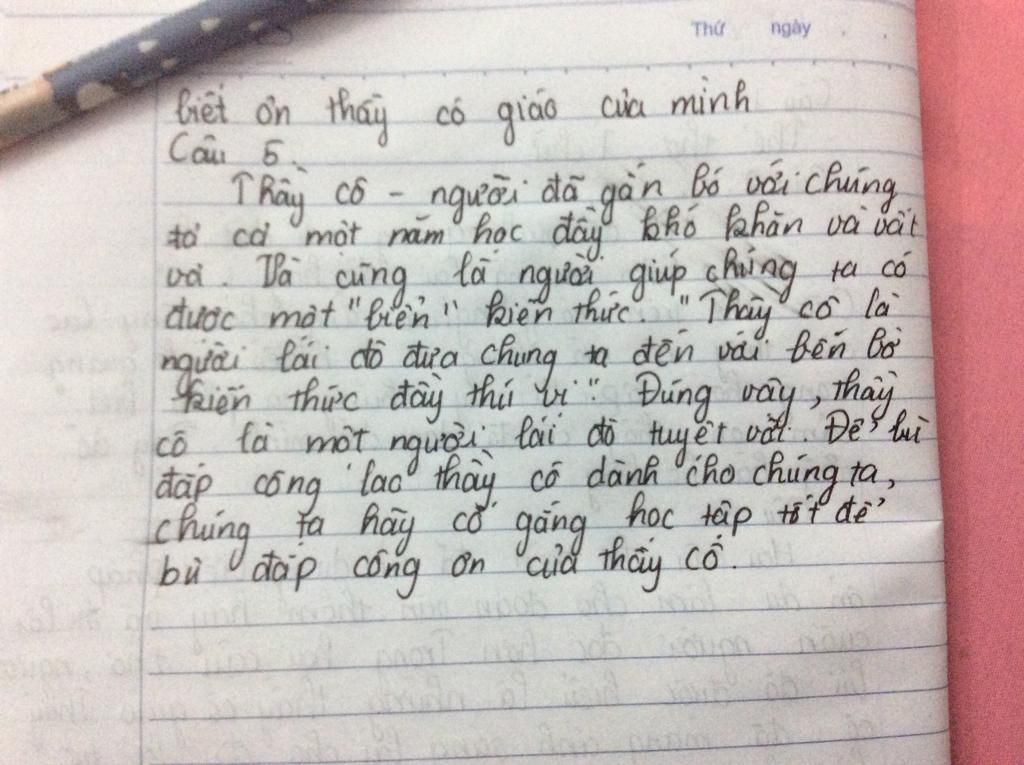 Thứ ngày
biết ơn thầy cô giáo của mình
Câu 5.
Thầy cô - người đã gắn bó với chúng
ta cả một năm học đầy khó khăn và vất
vả. Và cũng là người giúp chúng ta có
được một "biển" kiến thức. "Thầy cô là
người lái đò đưa chúng ta đến với bến bờ
kiến thức đầy thú vị". Đúng vậy, thầy
cô là một người lái đò tuyệt vời. Để bù
đắp công lao thầy cô dành cho chúng ta,
chúng ta hãy cố gắng học tập tốt để
bù đắp công ơn của thầy cô.